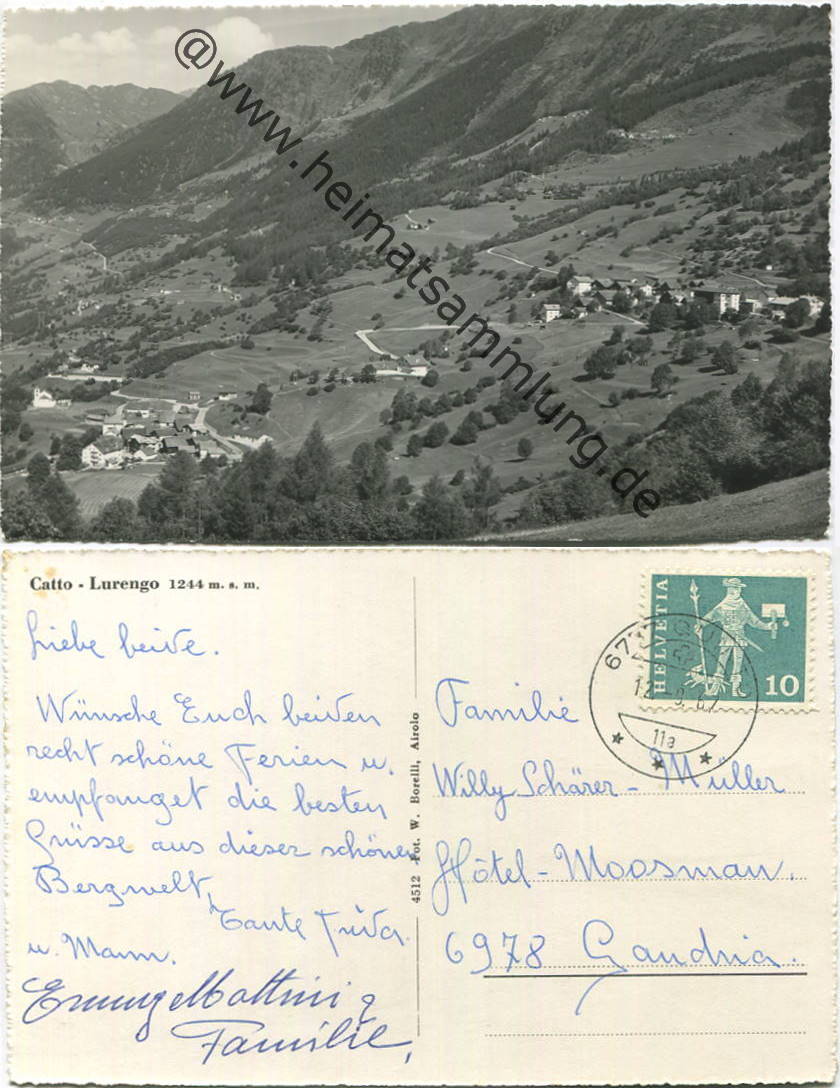 @www.heimatsammlung.de
Catto - Lurengo 1244 m. s. m.
Liebe beide.
Wünsche Euch beiden
recht schöne Ferien u.
empfanget die besten
Grüsse aus dieser schönen
Bergwelt,
Tante Frida
u. Mann.
Familie,
4512 Fot. W. Borelli, Airolo
HELVETIA
10
11a
Familie
Willy Schärer - Müller
Hôtel - Moosman.
6978 Gandria.